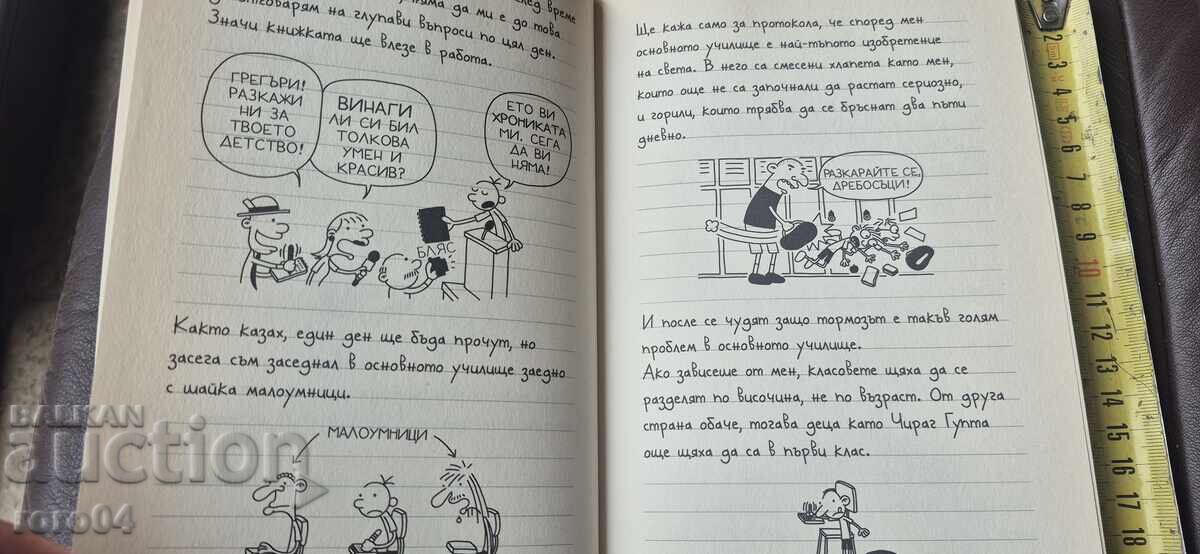 няма да ми е до това
на глупави въпроси по цял ден.
Значи книжката ще влезе в работа.
ГРЕГЪРИ!
РАЗКАЖИ
НИ ЗА
ТВОЕТО
ДЕТСТВО!
ВИНАГИ
ЛИ СИ БИЛ
ТОЛКОВА
УМЕН И
КРАСИВ?
ЕТО ВИ
ХРОНИКАТА
МИ. СЕГА
ДА ВИ
НЯМА!
БЛЯС
Както казах, един ден ще бъда прочут, но
засега съм заседнал в основното училище заедно
с шайка малоумници.
МАЛОУМНИЦИ
Ще кажа само за протокола, че според мен
основното училище е най-тъпото изобретение
на света. В него са смесени хлапета като мен,
които още не са започнали да растат сериозно,
и горили, които трябва да се бръснат два пъти
дневно.
РАЗКАРАЙТЕ СЕ,
ДРЕБОСЪЦИ!
И после се чудят защо тормозът е такъв голям
проблем в основното училище.
Ако зависеше от мен, класовете щяха да се
разделят по височина, не по възраст. От друга
страна обаче, тогава деца като Чираг Гупта
още щяха да са в първи клас.
2
3
4
5
6
7
8
9
10
11
12
13
14
15
16
17
18
BALKAN
auction
roro04